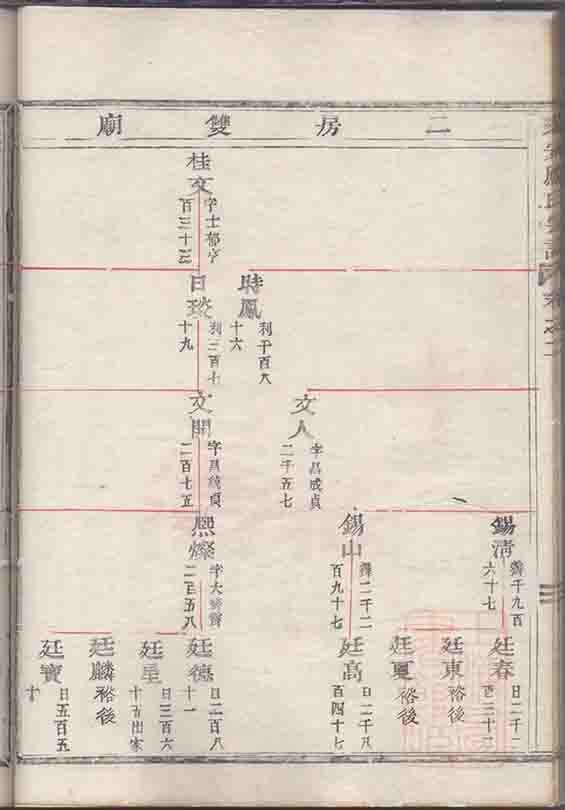 二房雙廟
桂文
字士郁亨
百三十三
時鳳
利千百八
十六
日琰
利三百七
十九
文人
字昌成貞
二千五七
文開
字昌統貞
二百七五
錫淸
霽千九百
六十七
錫山
霽二千二
百九十七
熙燦
字大
二百五八
廷春
日二千二
百三十三
廷東
裕後
廷夏
裕後
廷高
日二千八
百四十七
廷德
日二百八
十一
廷星
日三百六
十五出家
廷麟
裕後
廷寶
日五百五
十